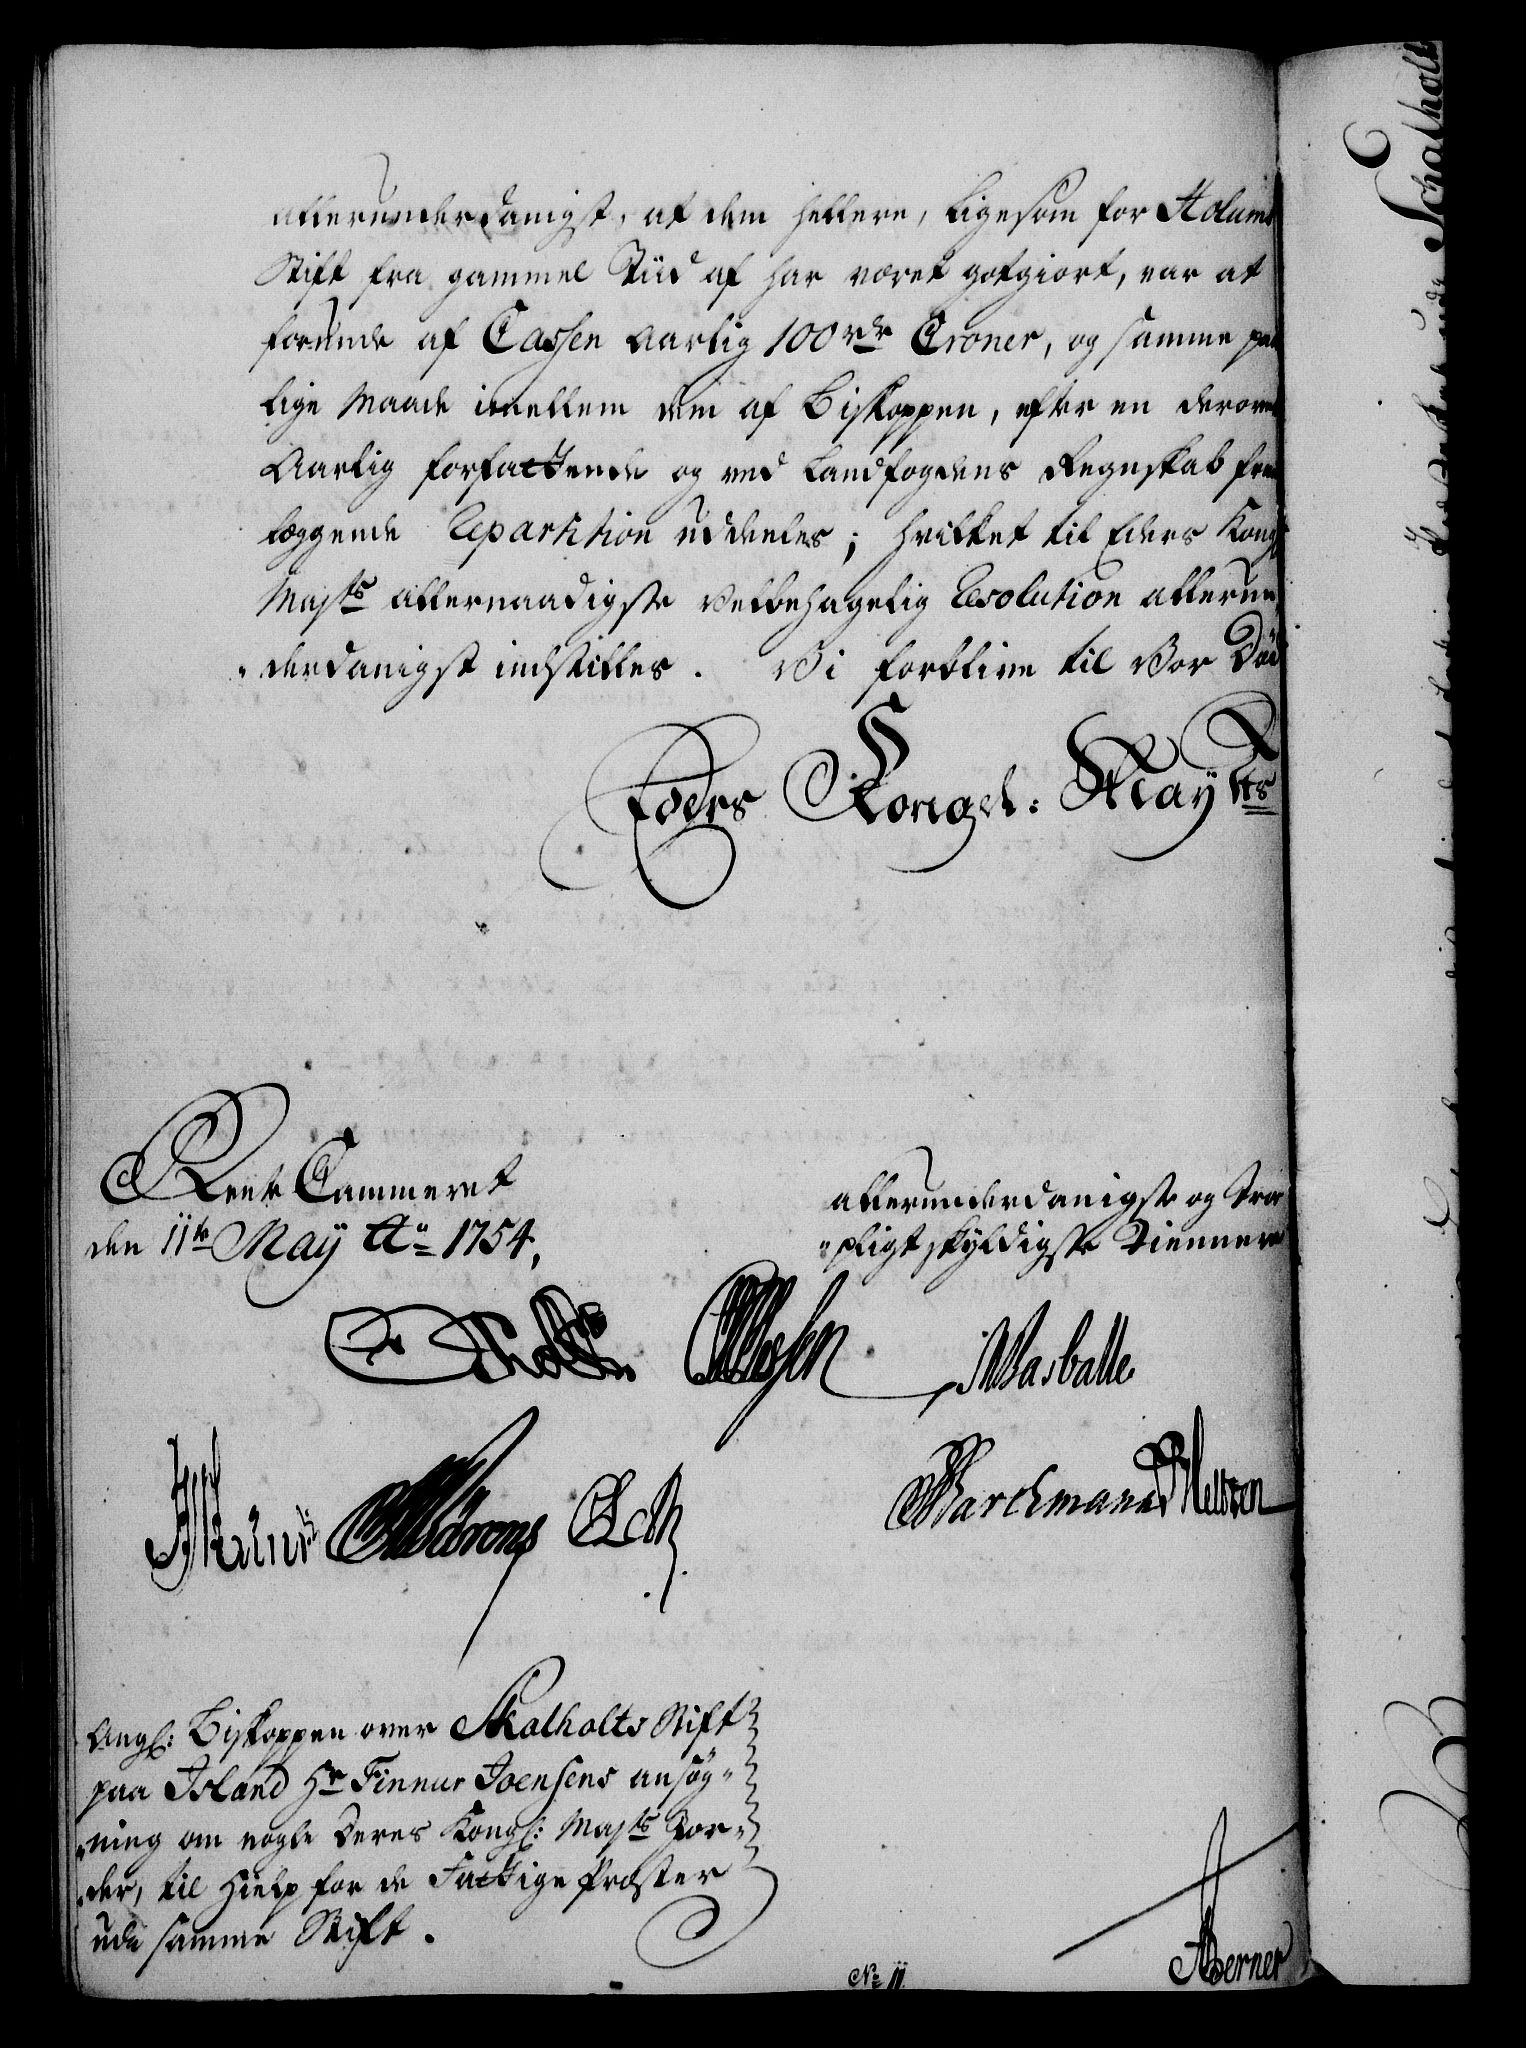 allerunderdanigst, at dem hellere, ligesom for Holums
Stift fra gammel Tiid af har været gotgiort, var at
forunde af Cassen aarlig 100 rdr Croner, og samme paa
lige Maade imellem dem af Biskoppen, efter en derover
Aarlig forfattende og ved Landfogdens Regnskab frem
læggende Repartition uddeeles; hvilket til Eders Kongl
Majts allernaadigste Velbehagelig Resolution allerun,
derdanigst indstilles. Vi forblive til Vor Död
Eders Kongel: Mayts
Rente Cammeret
den 11te May Ao 1754,
allerunderdanigste og troe
pligtskyldigste Tiennere
Holste
JMasballe
Barchmann
Angl: Biskoppen over Skalholts Stift
paa Island Hr Finnur Joensens ansøg-
ning om nogle Deres Kongl: Majts Jor-
der, til Hielp for de Fattige Præster
udi samme Stift.
No 11.
Berner
Schalholt